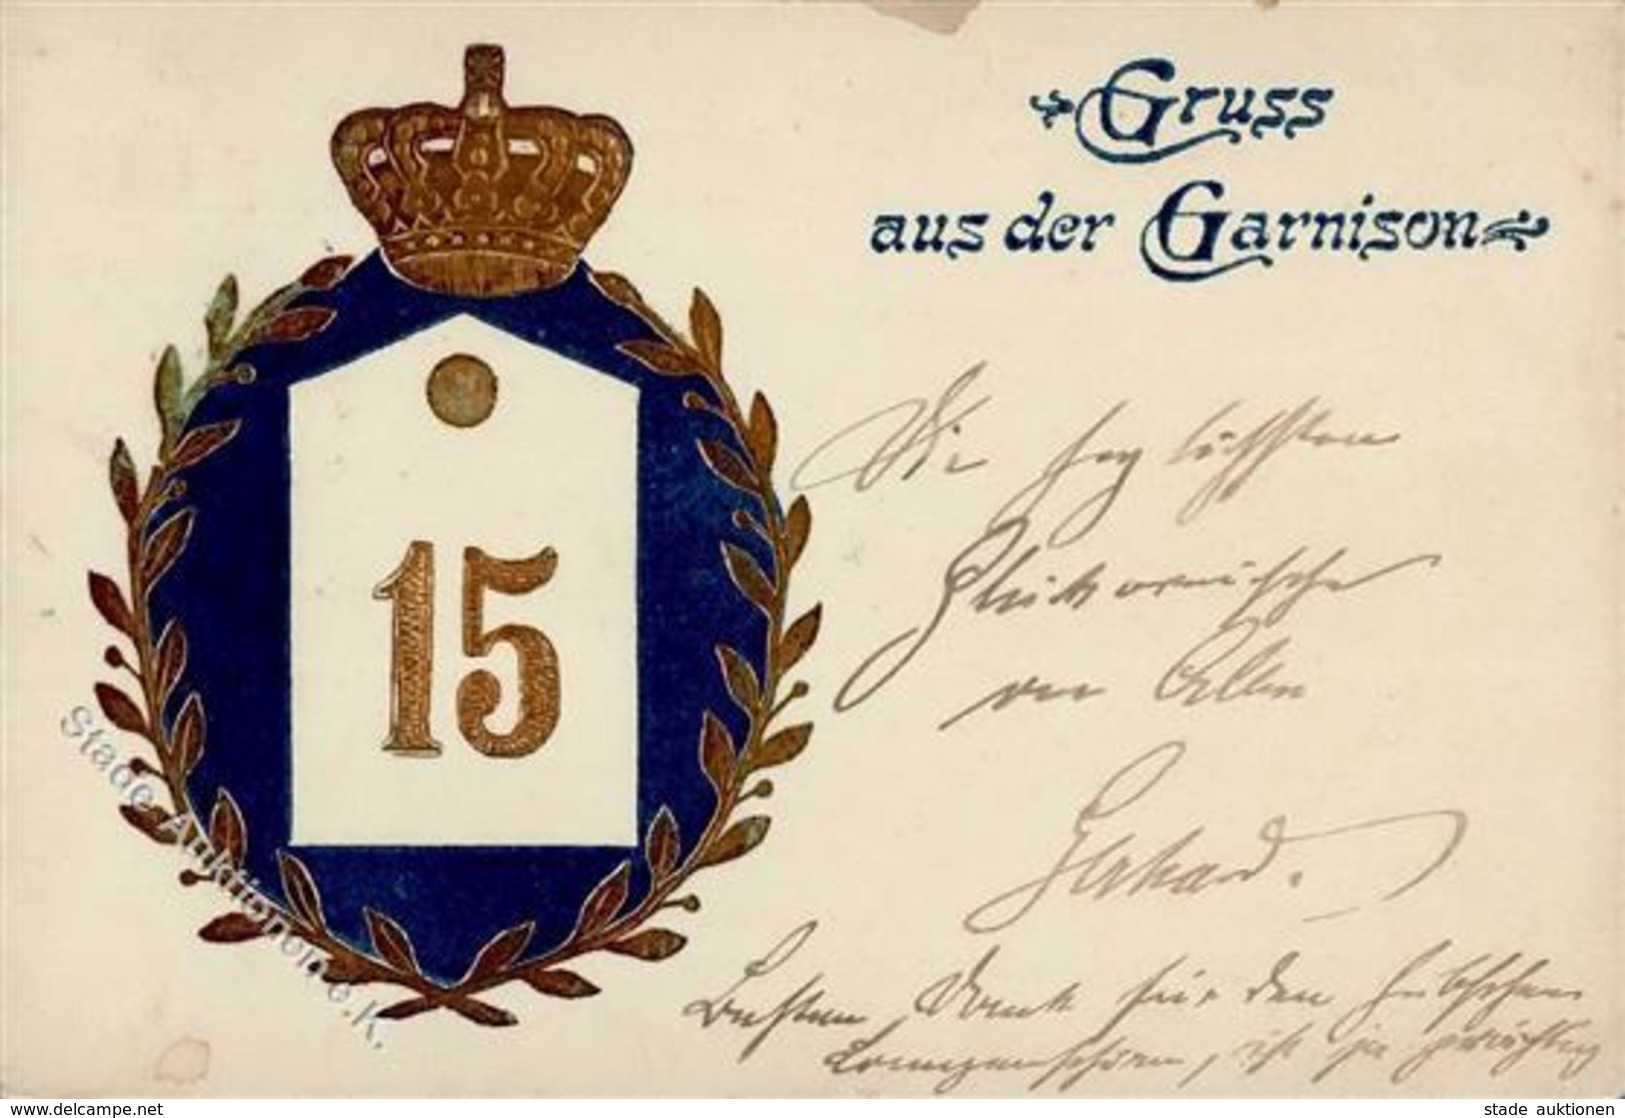 Gruss
aus der Garnison
15
Die herzlichsten
Glückwünsche
von Allen
Gerhard.
Besten Dank für den hübschen
, ist ja prächtig
Stade Auktionen e.K.
www.delcampe.net
stade auktionen